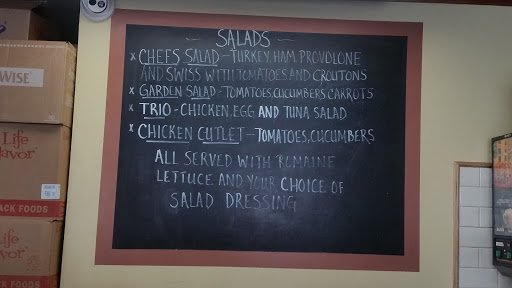 SALADS
x CHEFS SALAD - TURKEY, HAM, PROVOLONE
AND SWISS WITH TOMATOES AND CROUTONS
x GARDEN SALAD - TOMATOES, CUCUMBERS, CARROTS
x TRIO - CHICKEN, EGG AND TUNA SALAD
x CHICKEN CUTLET - TOMATOES, CUCUMBERS
ALL SERVED WITH ROMAINE
LETTUCE AND YOUR CHOICE OF
SALAD DRESSING
WISE
Life
avor
ACK FOODS
ife
vor
ACK FOODS